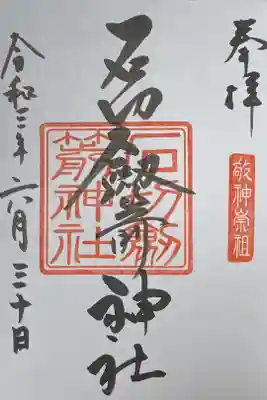 奉拝
敬神崇祖
石切劔箭神社
石切劔
箭神社
令和三年六月三十日